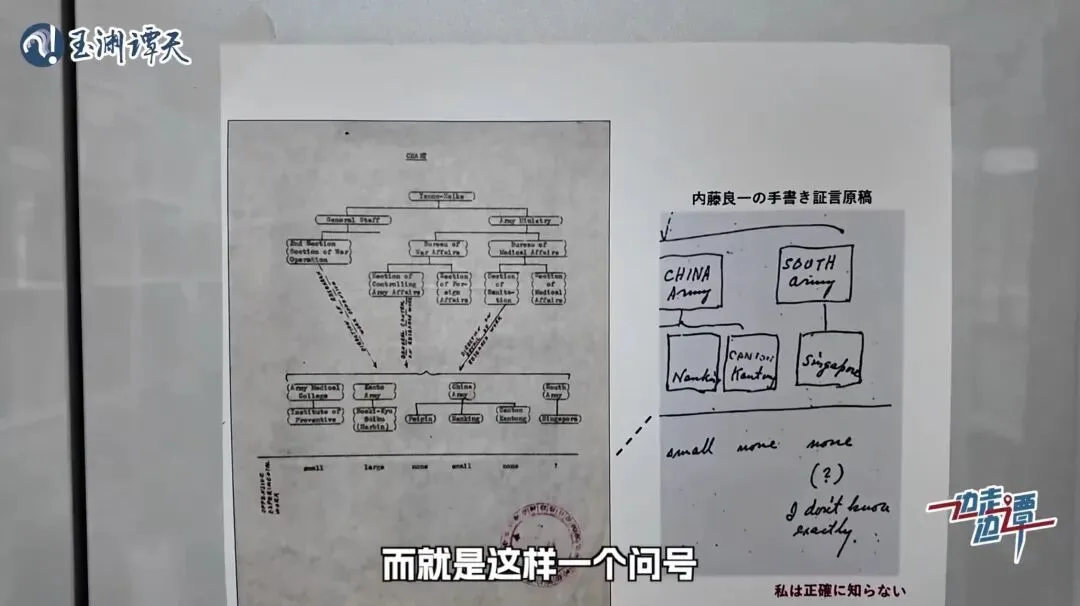 玉渊谭天
CHART
General Staff
Army Ministry
2nd Section
Section of War
Operation
Bureau of
War Affairs
Bureau of
Medical Affairs
Section of
Controlling
Army Affairs
Section
of For-
eign
Affairs
Section
of
Sanita-
tion
Section
of
Medical
Affairs
Army Medical
College
Kanto
Army
China
Army
South
Army
Institute of
Preventive
(Harbin)
Peipin
Nanking
Canton
Kantung
Singapore
OFFENSIVE
EXPERIMENTAL
WORK
small
large
none
small
none
?
内藤良一の手書き証言原稿
CHINA
Army
SOUTH
Army
Nankin
CANTON
Kantung
Singapore
small none none
(?)
I don't know
exactly.
私は正確に知らない
边走边谭
而就是这样一个问号